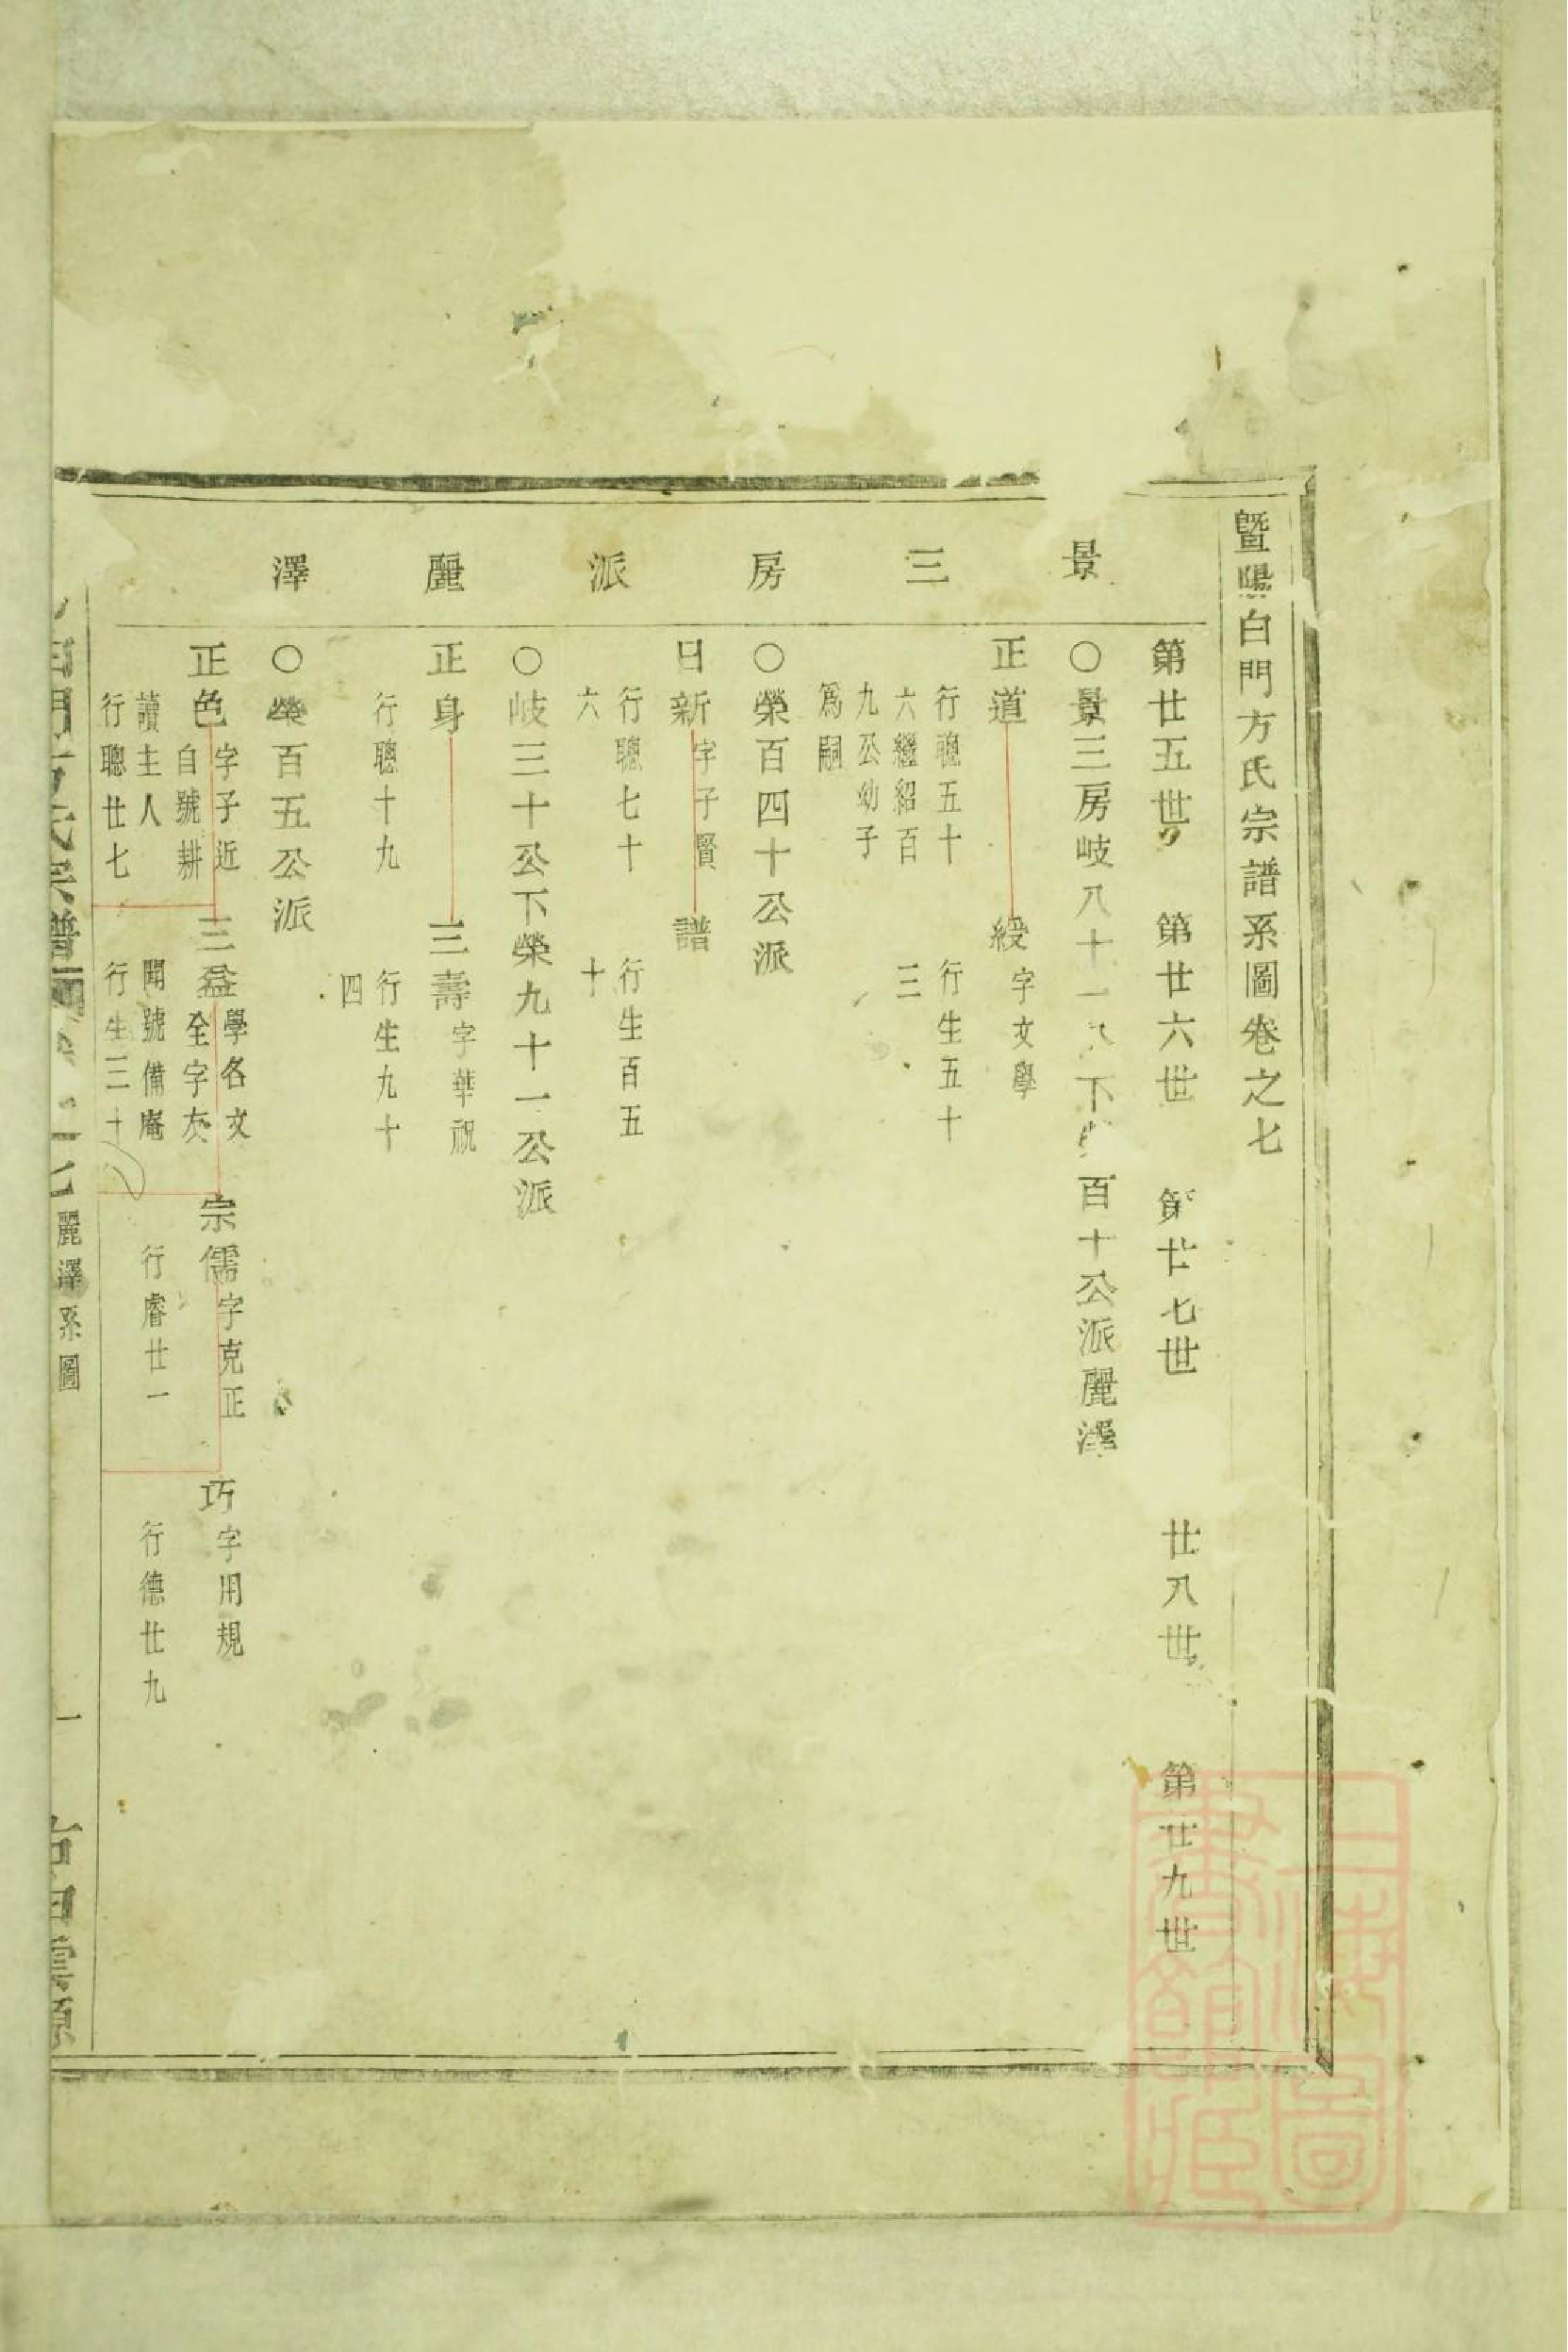 暨陽白門方氏宗譜系圖卷之七
景三房派麗澤
第廿五世 第廿六世 第廿七世 廿八世 第廿九世
○景三房岐八十一 下 百十公派麗澤
正道
行聰五十
六繼紹百
九公幼子
爲嗣
綬字文學
行生五十
三
○榮百四十公派
日新字子賢
行聰七十
六
譜
行生百五
十
○岐三十公下榮九十一公派
正身
行聰十九
三壽字華祝
行生九十
四
○榮百五公派
正色字子近
自號耕
讀主人
行聰廿七
三益學名文
全字友
聞號備庵
行生三十
宗儒字克正
行睿廿一
巧字用規
行德廿九
白門方氏宗譜 七 麗澤系圖 一 古田雲源
上海圖書館藏